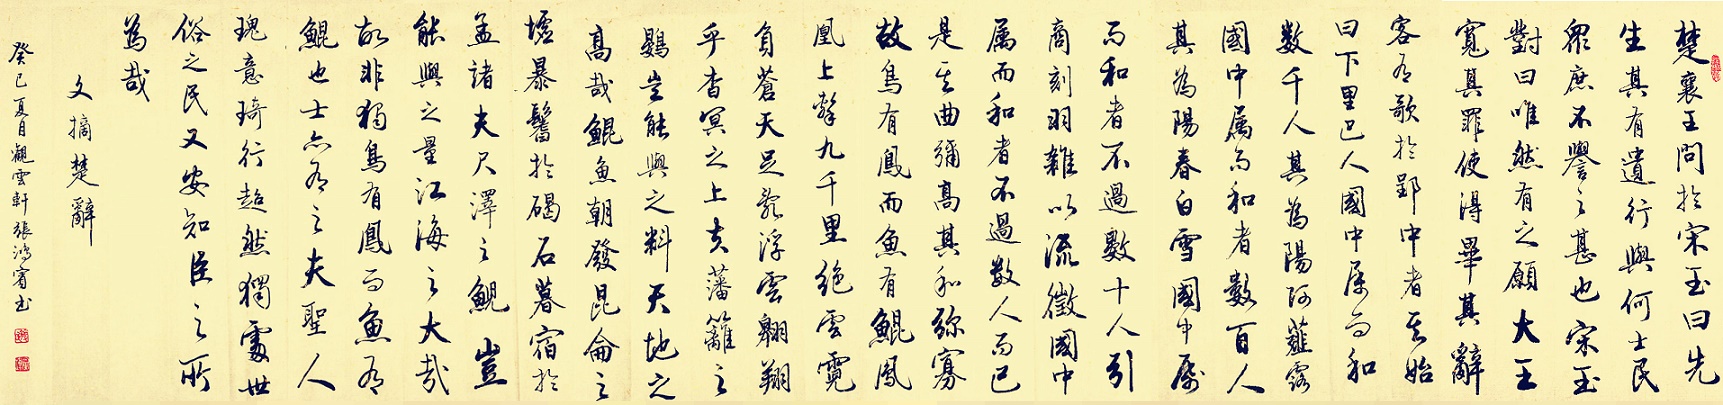 楚襄王問於宋玉曰先
生其有遺行與何士民
眾庶不譽之甚也宋玉
對曰唯然有之願大王
寬其罪使得畢其辭
客有歌於郢中者其始
曰下里巴人國中屬而和
数千人其為陽阿薤露
國中属而和者數百人
其為陽春白雪國中屬
而和者不過數十人引
商刻羽雜以流徵國中
属而和者不過數人而已
是其曲彌高其和弥寡
故鳥有鳳而魚有鯤鳳
凰上擊九千里絕雲霓
負蒼天足亂浮雲翱翔
乎杳冥之上夫藩籬之
鷃豈能與之料天地之
高哉鯤魚朝發昆侖之
墟暴鬐於碣石暮宿於
孟諸夫尺澤之鯢豈
能與之量江海之大哉
故非獨鳥有鳳而魚有
鯤也士亦有之夫聖人
瑰意琦行超然獨處世
俗之民又安知臣之所
為哉
文摘楚辭
癸巳夏月觀雲軒張鴻賓書